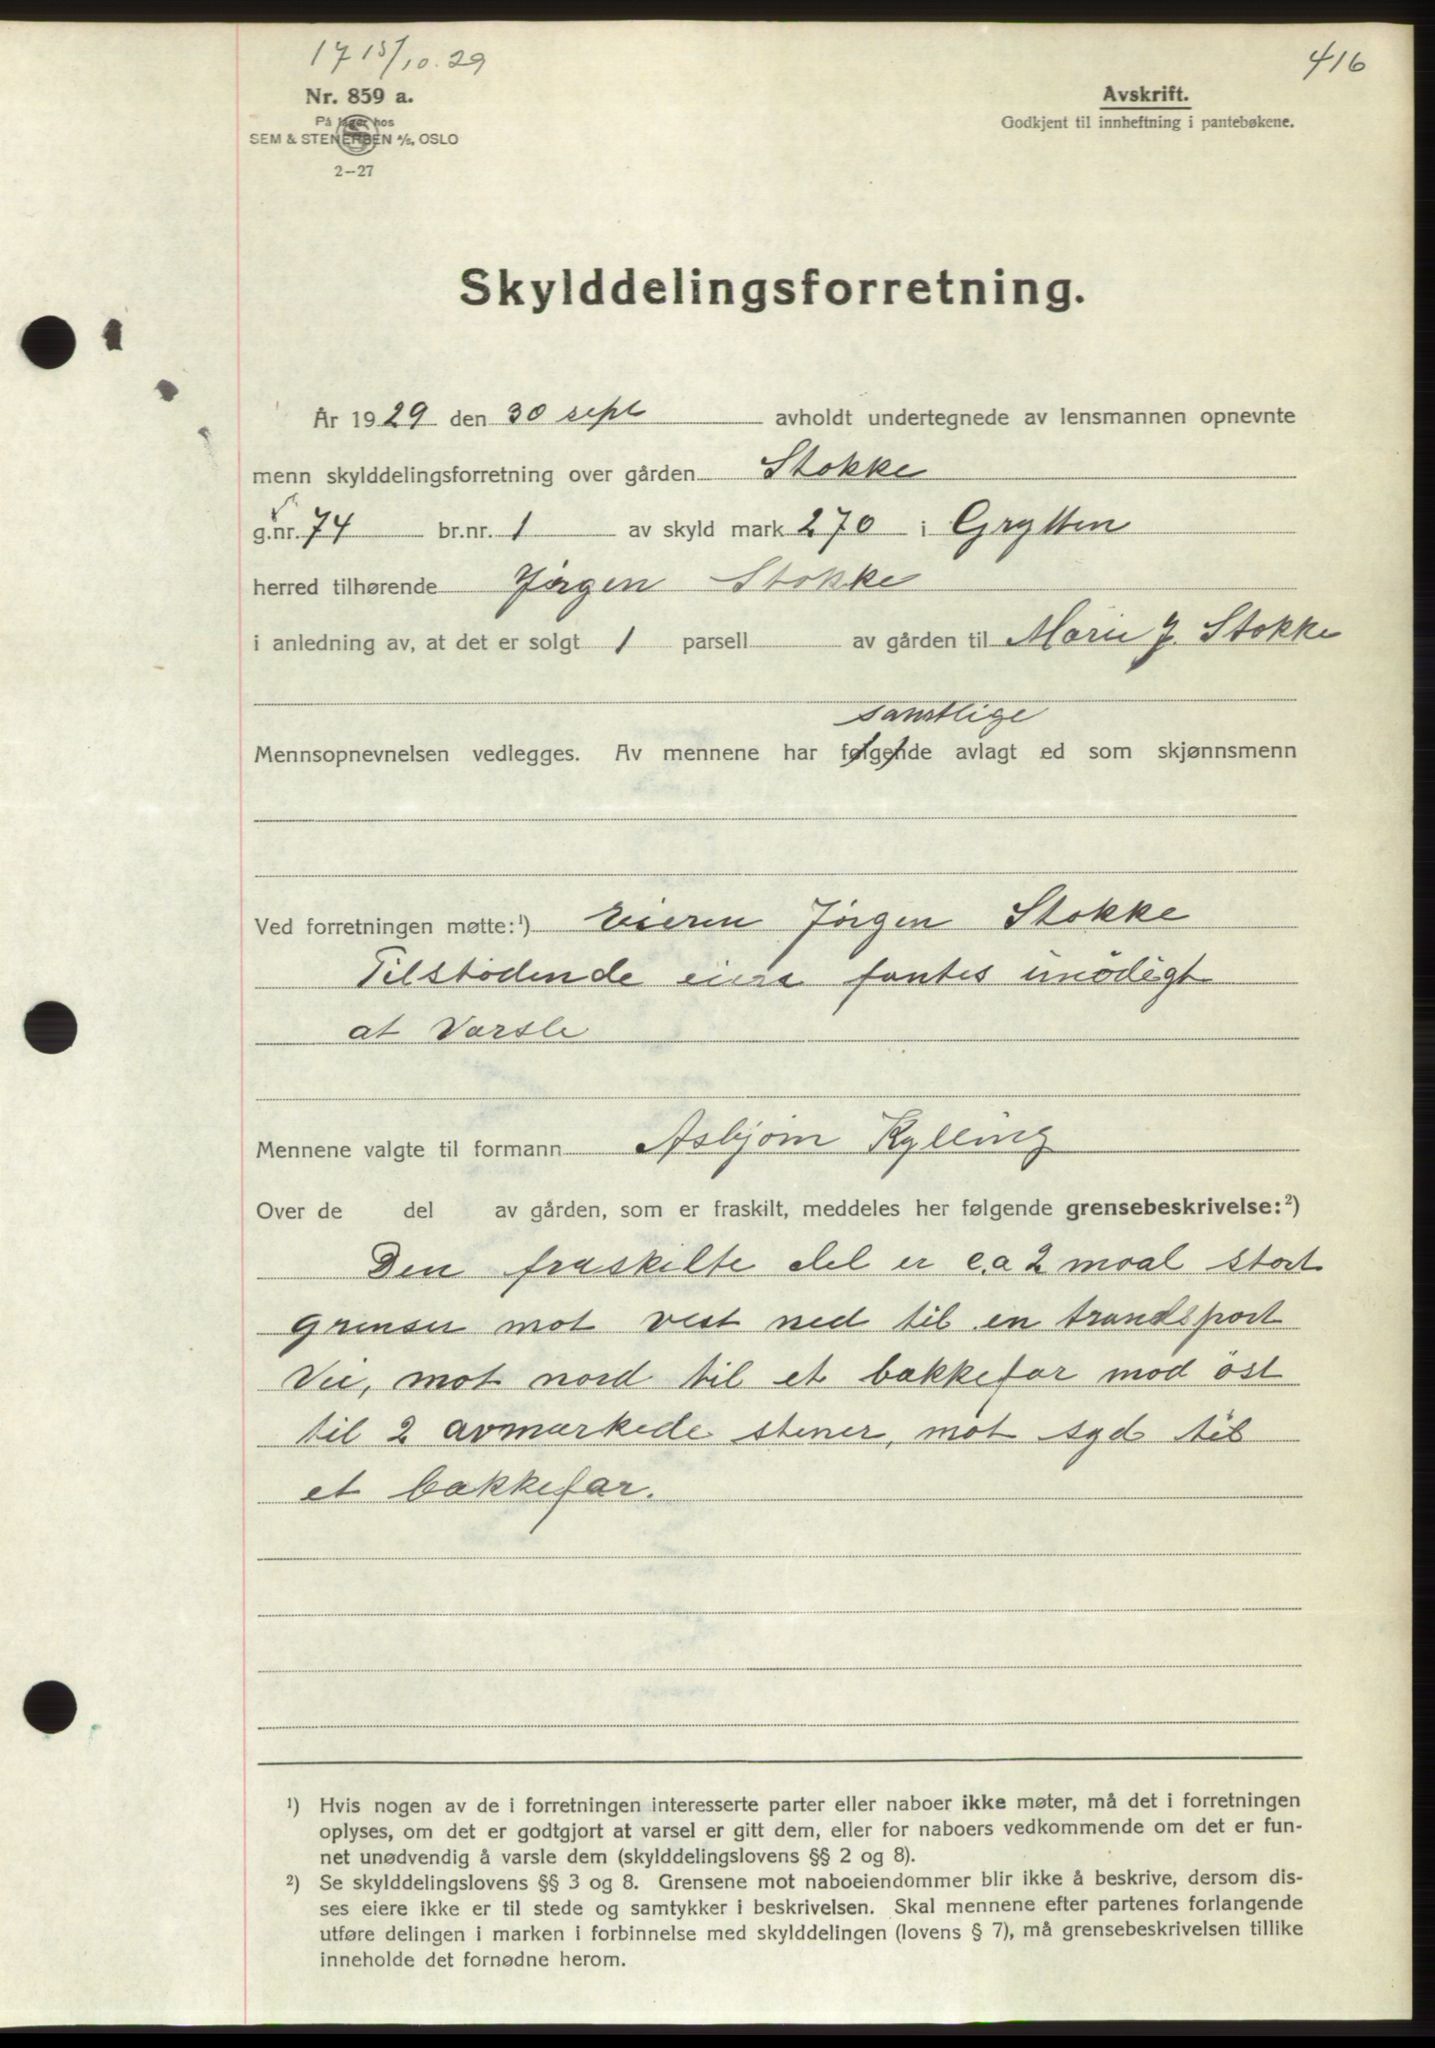 17 15/10.29
416
Nr. 859 a.
På lager hos
SEM & STENERSEN A/S, OSLO
2-27
Avskrift.
Godkjent til innheftning i pantebøkene.
Skylddelingsforretning.
År 1929 den 30 sept avholdt undertegnede av lensmannen opnevnte
menn skylddelingsforretning over gården Stokke
g.nr. 74 br.nr. 1 av skyld mark 270 i Grytten
herred tilhørende Jörgen Stokke
i anledning av, at det er solgt 1 parsell av gården til Marie J. Stokke
samtlige
Mennsopnevnelsen vedlegges. Av mennene har følgende avlagt ed som skjønnsmenn
Ved forretningen møtte:¹) Eieren Jörgen Stokke
Tilstödende eiere fantes unödigt
at Varsle
Mennene valgte til formann Asbjörn Kylling
Over de del av gården, som er fraskilt, meddeles her følgende grensebeskrivelse:²)
Den fraskilte del er c.a 2 maal stort
grenser mot vest ned til en trandsport
Vei, mot nord til et bakkefar mod öst
til 2 avmarkede stener, mot syd til
et bakkefar.
¹) Hvis nogen av de i forretningen interesserte parter eller naboer ikke møter, må det i forretningen
oplyses, om det er godtgjort at varsel er gitt dem, eller for naboers vedkommende om det er fun-
net unødvendig å varsle dem (skylddelingslovens §§ 2 og 8).
²) Se skylddelingslovens §§ 3 og 8. Grensene mot naboeiendommer blir ikke å beskrive, dersom dis-
ses eiere ikke er til stede og samtykker i beskrivelsen. Skal mennene efter partenes forlangende
utføre delingen i marken i forbinnelse med skylddelingen (lovens § 7), må grensebeskrivelsen tillike
inneholde det fornødne herom.